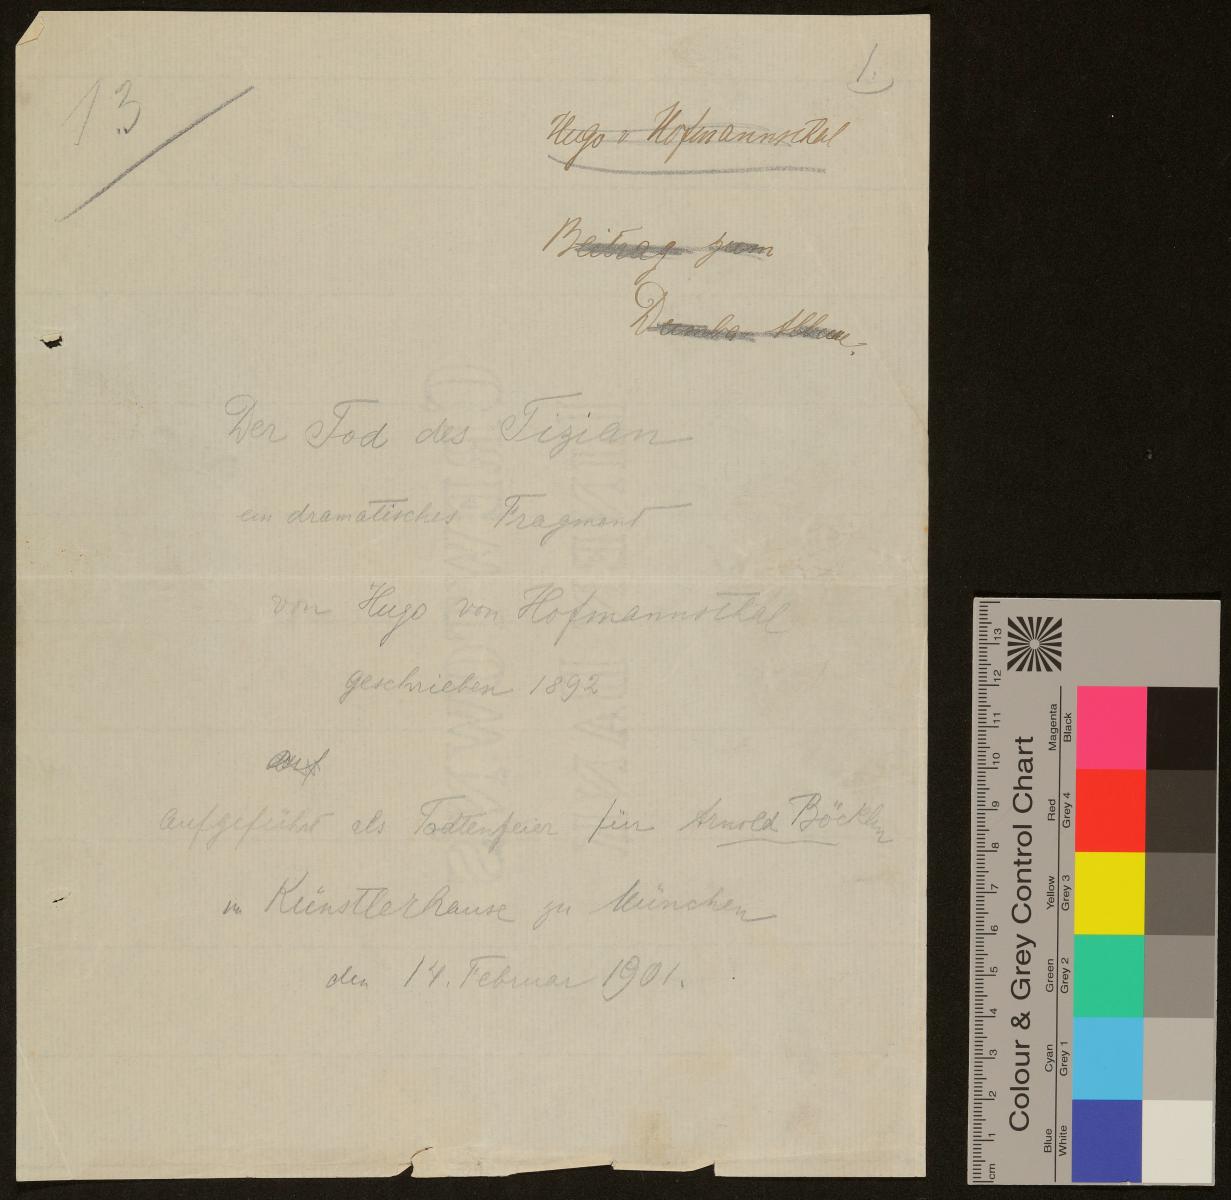 13
1.
Hugo v Hofmannsthal
Beitrag zum
Dumba Album.
Der Tod des Tizian
ein dramatisches Fragment
von Hugo von Hofmannsthal
geschrieben 1892
auf
aufgeführt als Todtenfeier für Arnold Böcklin
im Künstlerhause zu München
den 14. Februar 1901.
Colour & Grey Control Chart
Blue Cyan Green Yellow Red Magenta
White Grey 1 Grey 2 Grey 3 Grey 4 Black
cm 1 2 3 4 5 6 7 8 9 10 11 12 13